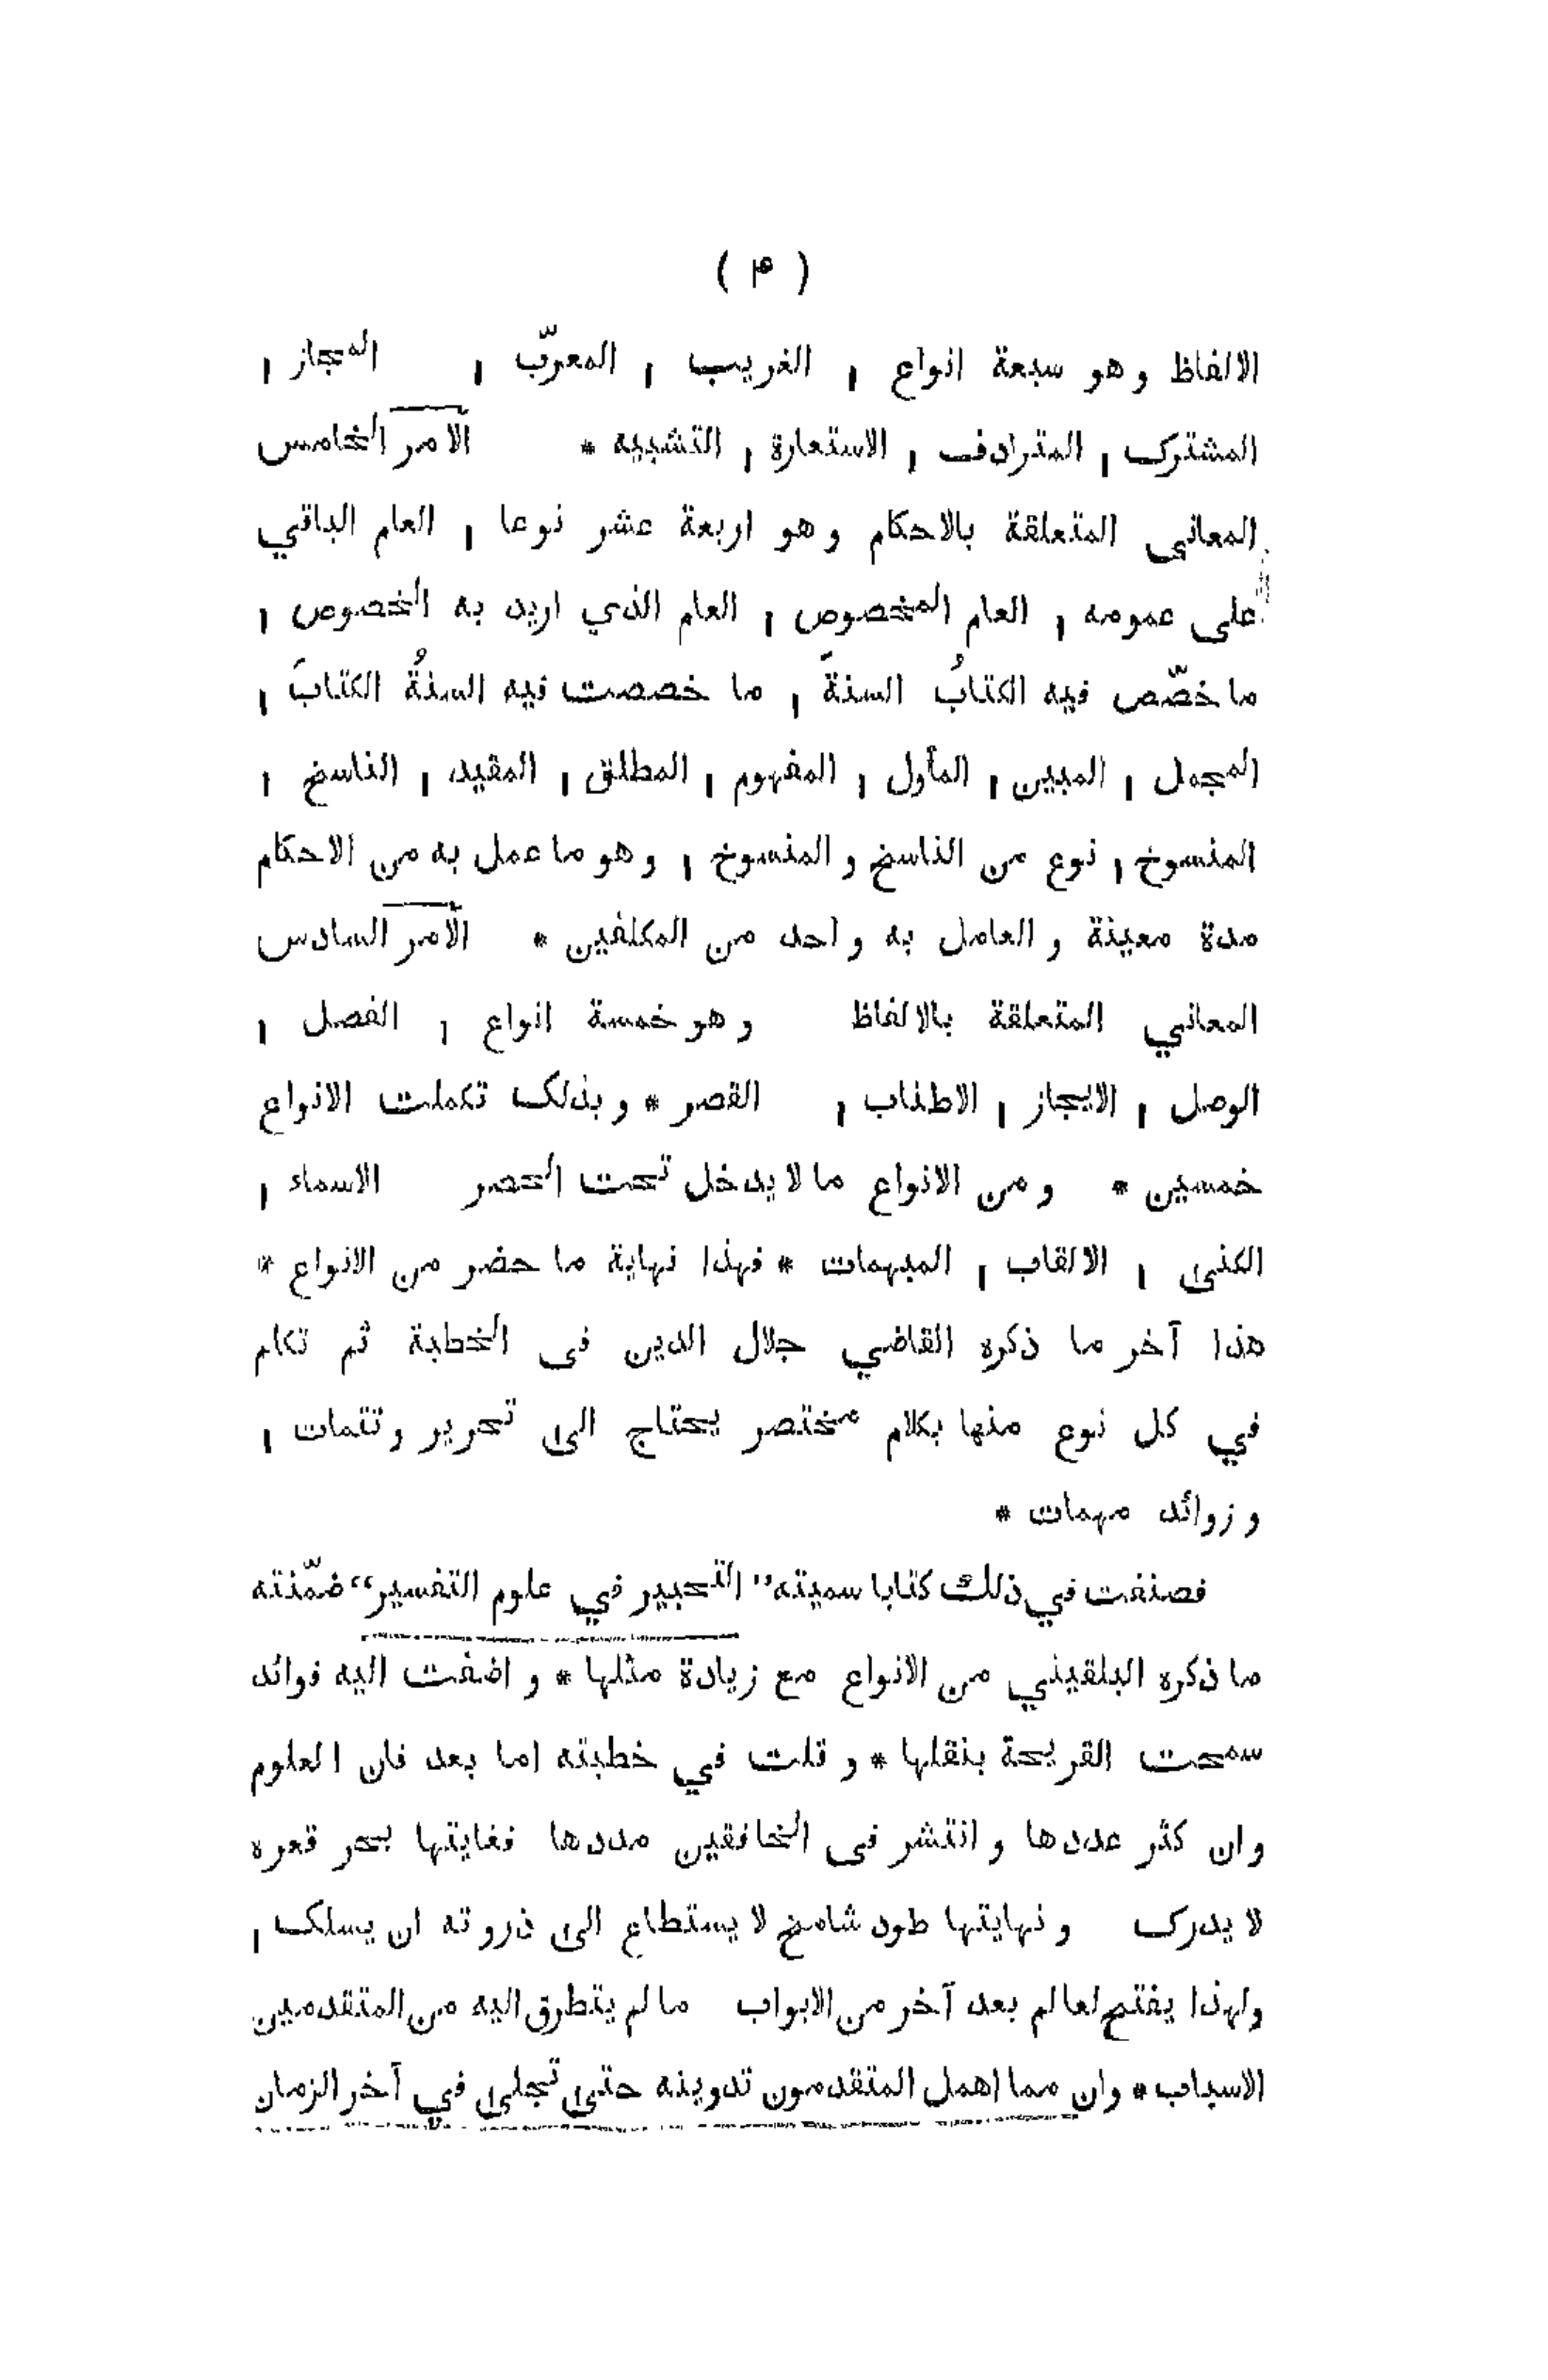 ( ۴ )
الالفاظ وهو سبعة انواع , الغريب , المعرّب , المجاز ,
المشترك , المترادف , الاستعارة , التشبيه * الامر الخامس
المعانى المتعلقة بالاحكام وهو اربعة عشر نوعا , العام الباقي
على عمومه , العام المخصوص , العام الذي اريد به الخصوص ,
ما خصّص فيه الكتابُ السنةَ , ما خصصت فيه السنةُ الكتابَ ,
المجمل , المبين , المأول , المفهوم , المطلق , المقيد , الناسخ ,
المنسوخ , نوع من الناسخ والمنسوخ , وهو ما عمل به من الاحكام
مدة معينة والعامل به واحد من المكلفين * الامر السادس
المعاني المتعلقة بالالفاظ وهو خمسة انواع , الفصل ,
الوصل , الايجاز , الاطناب , القصر * وبذلك تكملت الانواع
خمسين * ومن الانواع ما لا يدخل تحت الحصر الاسماء ,
الكنى , الالقاب , المبهمات * فهذا نهاية ما حضر من الانواع *
هذا آخر ما ذكره القاضي جلال الدين فى الخطبة ثم تكلم
في كل نوع منها بكلام مختصر يحتاج الى تحرير وتتمات ,
وزوائد مهمات *
فصنفت في ذلك كتابا سميته "التحبير في علوم التفسير" ضمّنته
ما ذكره البلقيني من الانواع مع زيادة مثلها * واضفت اليه فوائد
سمحت القريحة بنقلها * وقلت في خطبته اما بعد فان العلوم
وان كثر عددها وانتشر فى الخافقين مددها فغايتها بحر قعره
لا يدرك ونهايتها طود شامخ لا يستطاع الى ذروته ان يسلك ,
ولهذا يفتح لعالم بعد آخر من الابواب ما لم يتطرق اليه من المتقدمين
الاسباب * وان مما اهمل المتقدمون تدوينه حتى تجلى في آخر الزمان